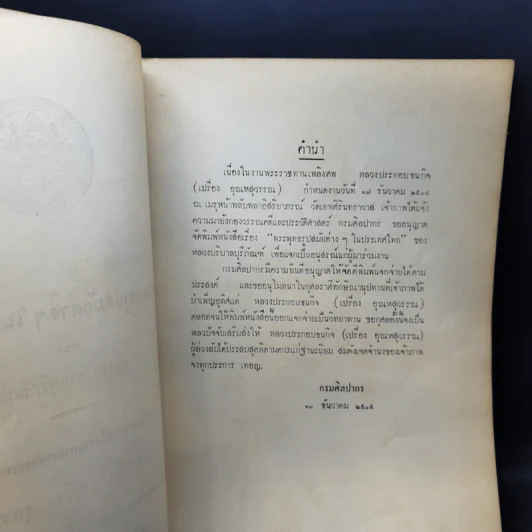 คำนำ
เนื่องในงานพระราชทานเพลิงศพ หลวงประกอบชนกิจ
(เปรื่อง อุณหสุวรรณ) กำหนดงานวันที่ ๑๘ ธันวาคม ๒๕๐๘
ณ เมรุหน้าพลับพลาอิสริยาภรณ์ วัดเทพศิรินทราวาส เจ้าภาพได้แจ้ง
ความมายังกองวรรณคดีและประวัติศาสตร์ กรมศิลปากร ขออนุญาต
จัดพิมพ์หนังสือเรื่อง “พระพุทธรูปสมัยต่าง ๆ ในประเทศไทย” ของ
หลวงบริบาลบุรีภัณฑ์ เพื่อแจกเป็นอนุสรณ์แก่ผู้มาร่วมงาน
กรมศิลปากรมีความยินดีอนุญาตให้จัดพิมพ์แจกจ่ายได้ตาม
ประสงค์ และขออนุโมทนาในกุศลราศีทักษิณานุปทานที่เจ้าภาพได้
บำเพ็ญอุทิศแด่ หลวงประกอบชนกิจ (เปรื่อง อุณหสุวรรณ)
ตลอดจนให้พิมพ์หนังสือนี้ออกแจกจ่ายเป็นวิทยาทาน ขอกุศลทั้งนี้จงเป็น
พลวปัจจัยเสริมส่งให้ หลวงประกอบชนกิจ (เปรื่อง อุณหสุวรรณ)
ผู้ล่วงลับได้ประสบสุคติตามควรแก่ฐานะนิยม สมดังเจตจำนงของเจ้าภาพ
จงทุกประการ เทอญ.
กรมศิลปากร
ธันวาคม